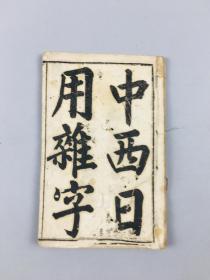 中西日
用雜字